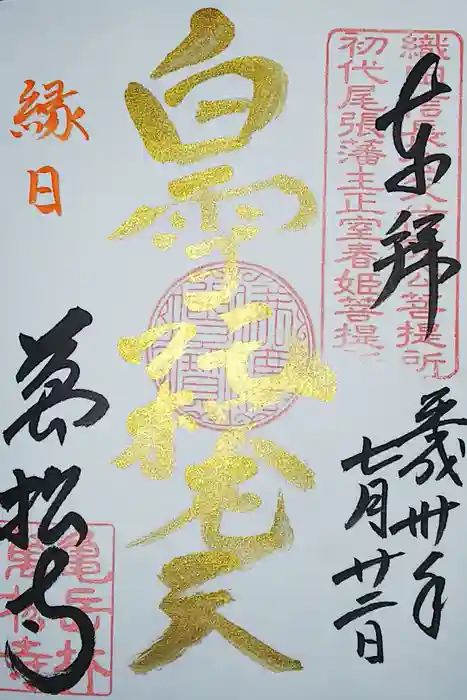 奉拝
織田信長 公菩提所
初代尾張藩主正室春姫菩提
平成卅年
七月廿二日
白雪吒枳尼天
縁日
萬松寺
亀岳林
萬松寺